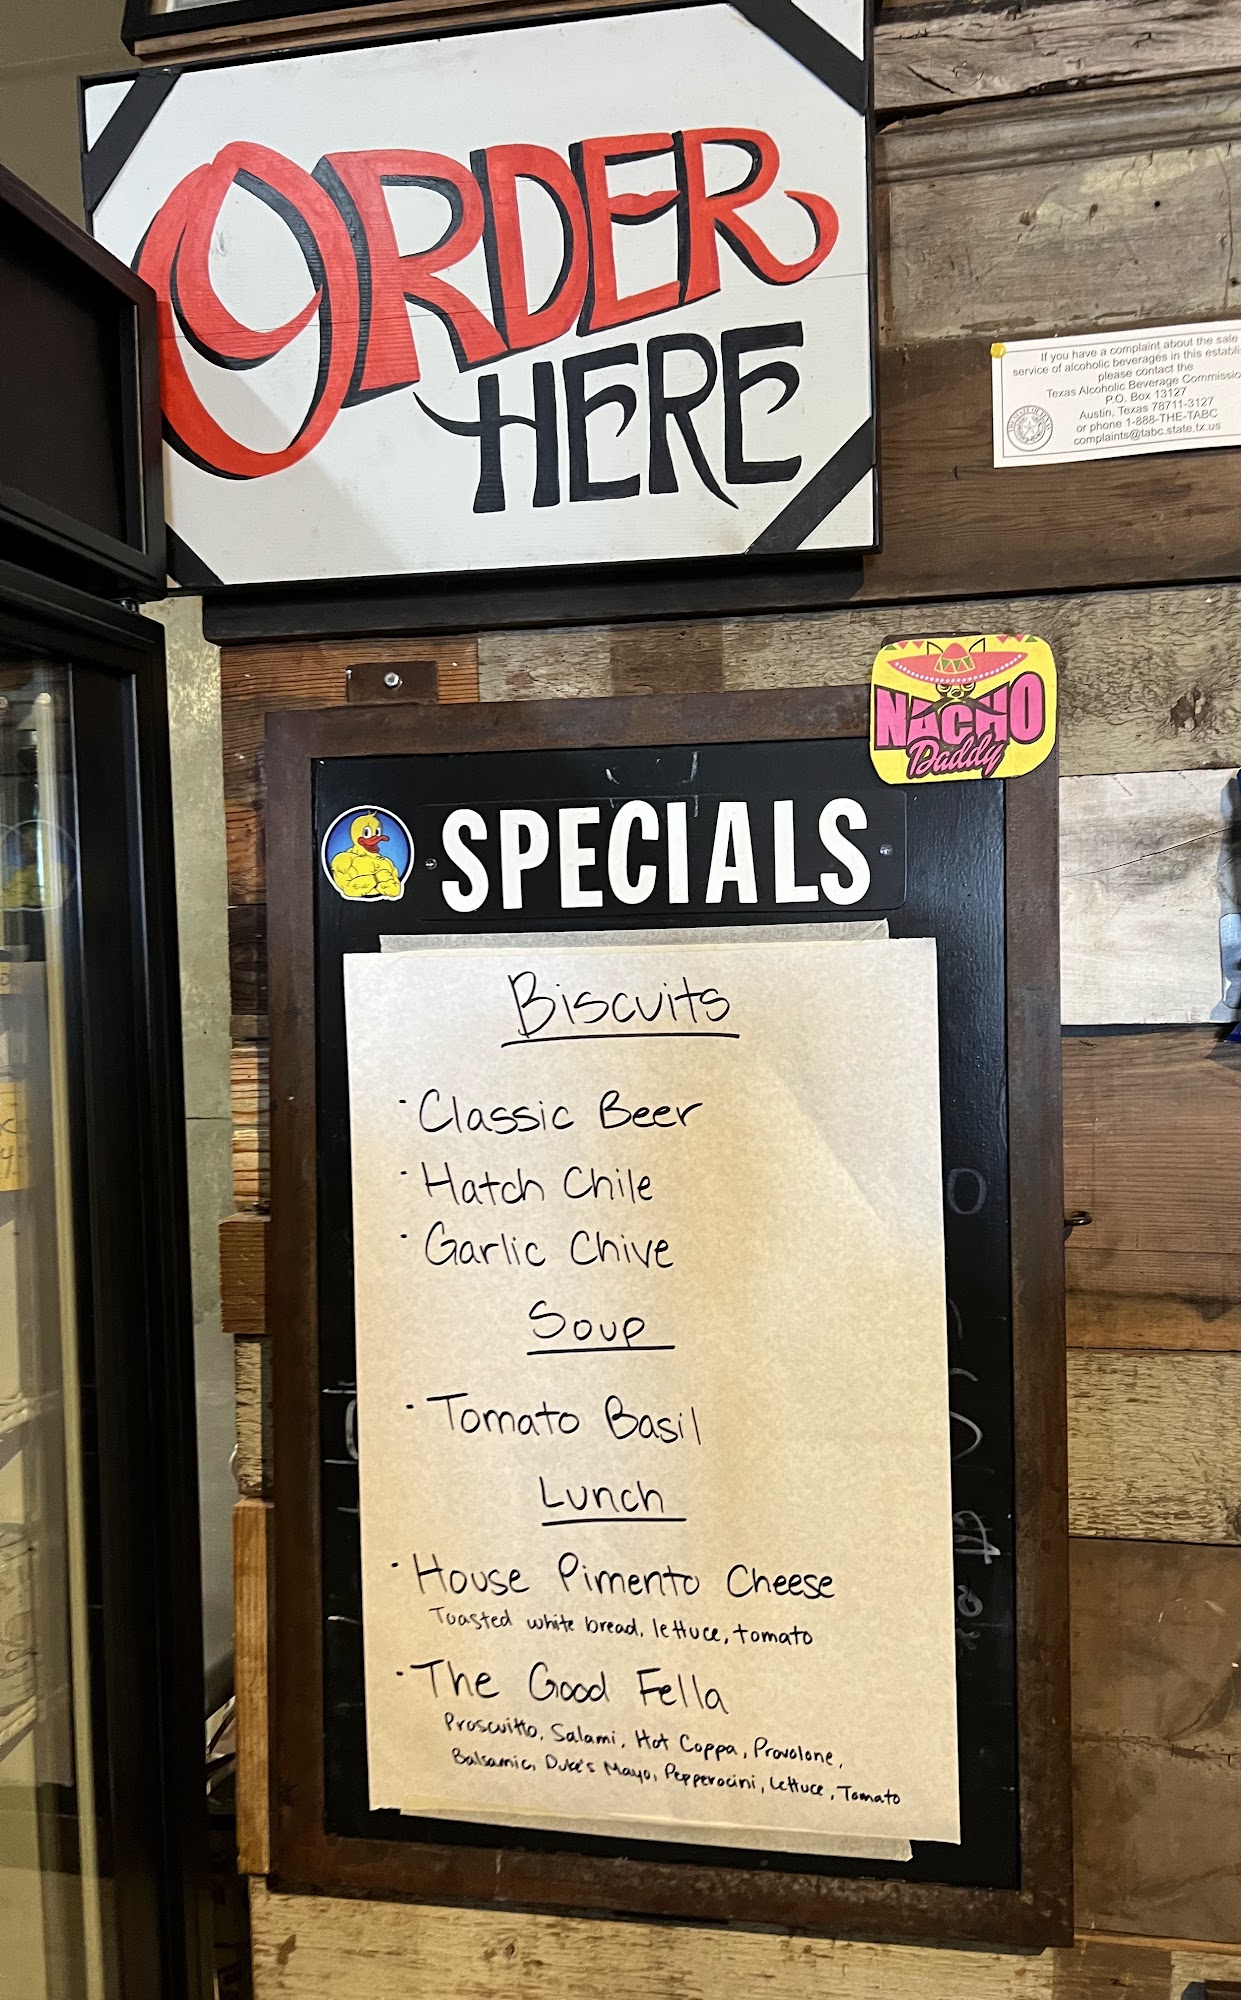 ORDER
HERE
If you have a complaint about the sale
service of alcoholic beverages in this establi
please contact the
Texas Alcoholic Beverage Commissio
P.O. Box 13127
Austin, Texas 78711-3127
or phone 1-888-THE-TABC
complaints@tabc.state.tx.us
NACHO
Daddy
SPECIALS
Biscuits
· Classic Beer
· Hatch Chile
· Garlic Chive
Soup
· Tomato Basil
Lunch
· House Pimento Cheese
Toasted white bread, lettuce, tomato
· The Good Fella
Proscuitto, Salami, Hot Coppa, Provolone,
Balsamic, Duke's Mayo, Pepperocini, Lettuce, Tomato